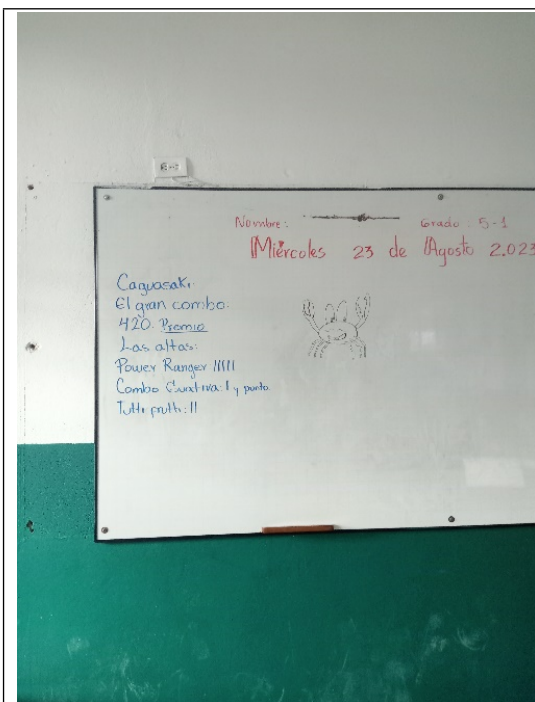 Nombre: Grado: 5-1
Miércoles 23 de Agosto 2.023
Caguasaki.
El gran combo:
420. Promo
Las altas:
Power Ranger IIIII
Combo : I y punto
Tutti prutti: II